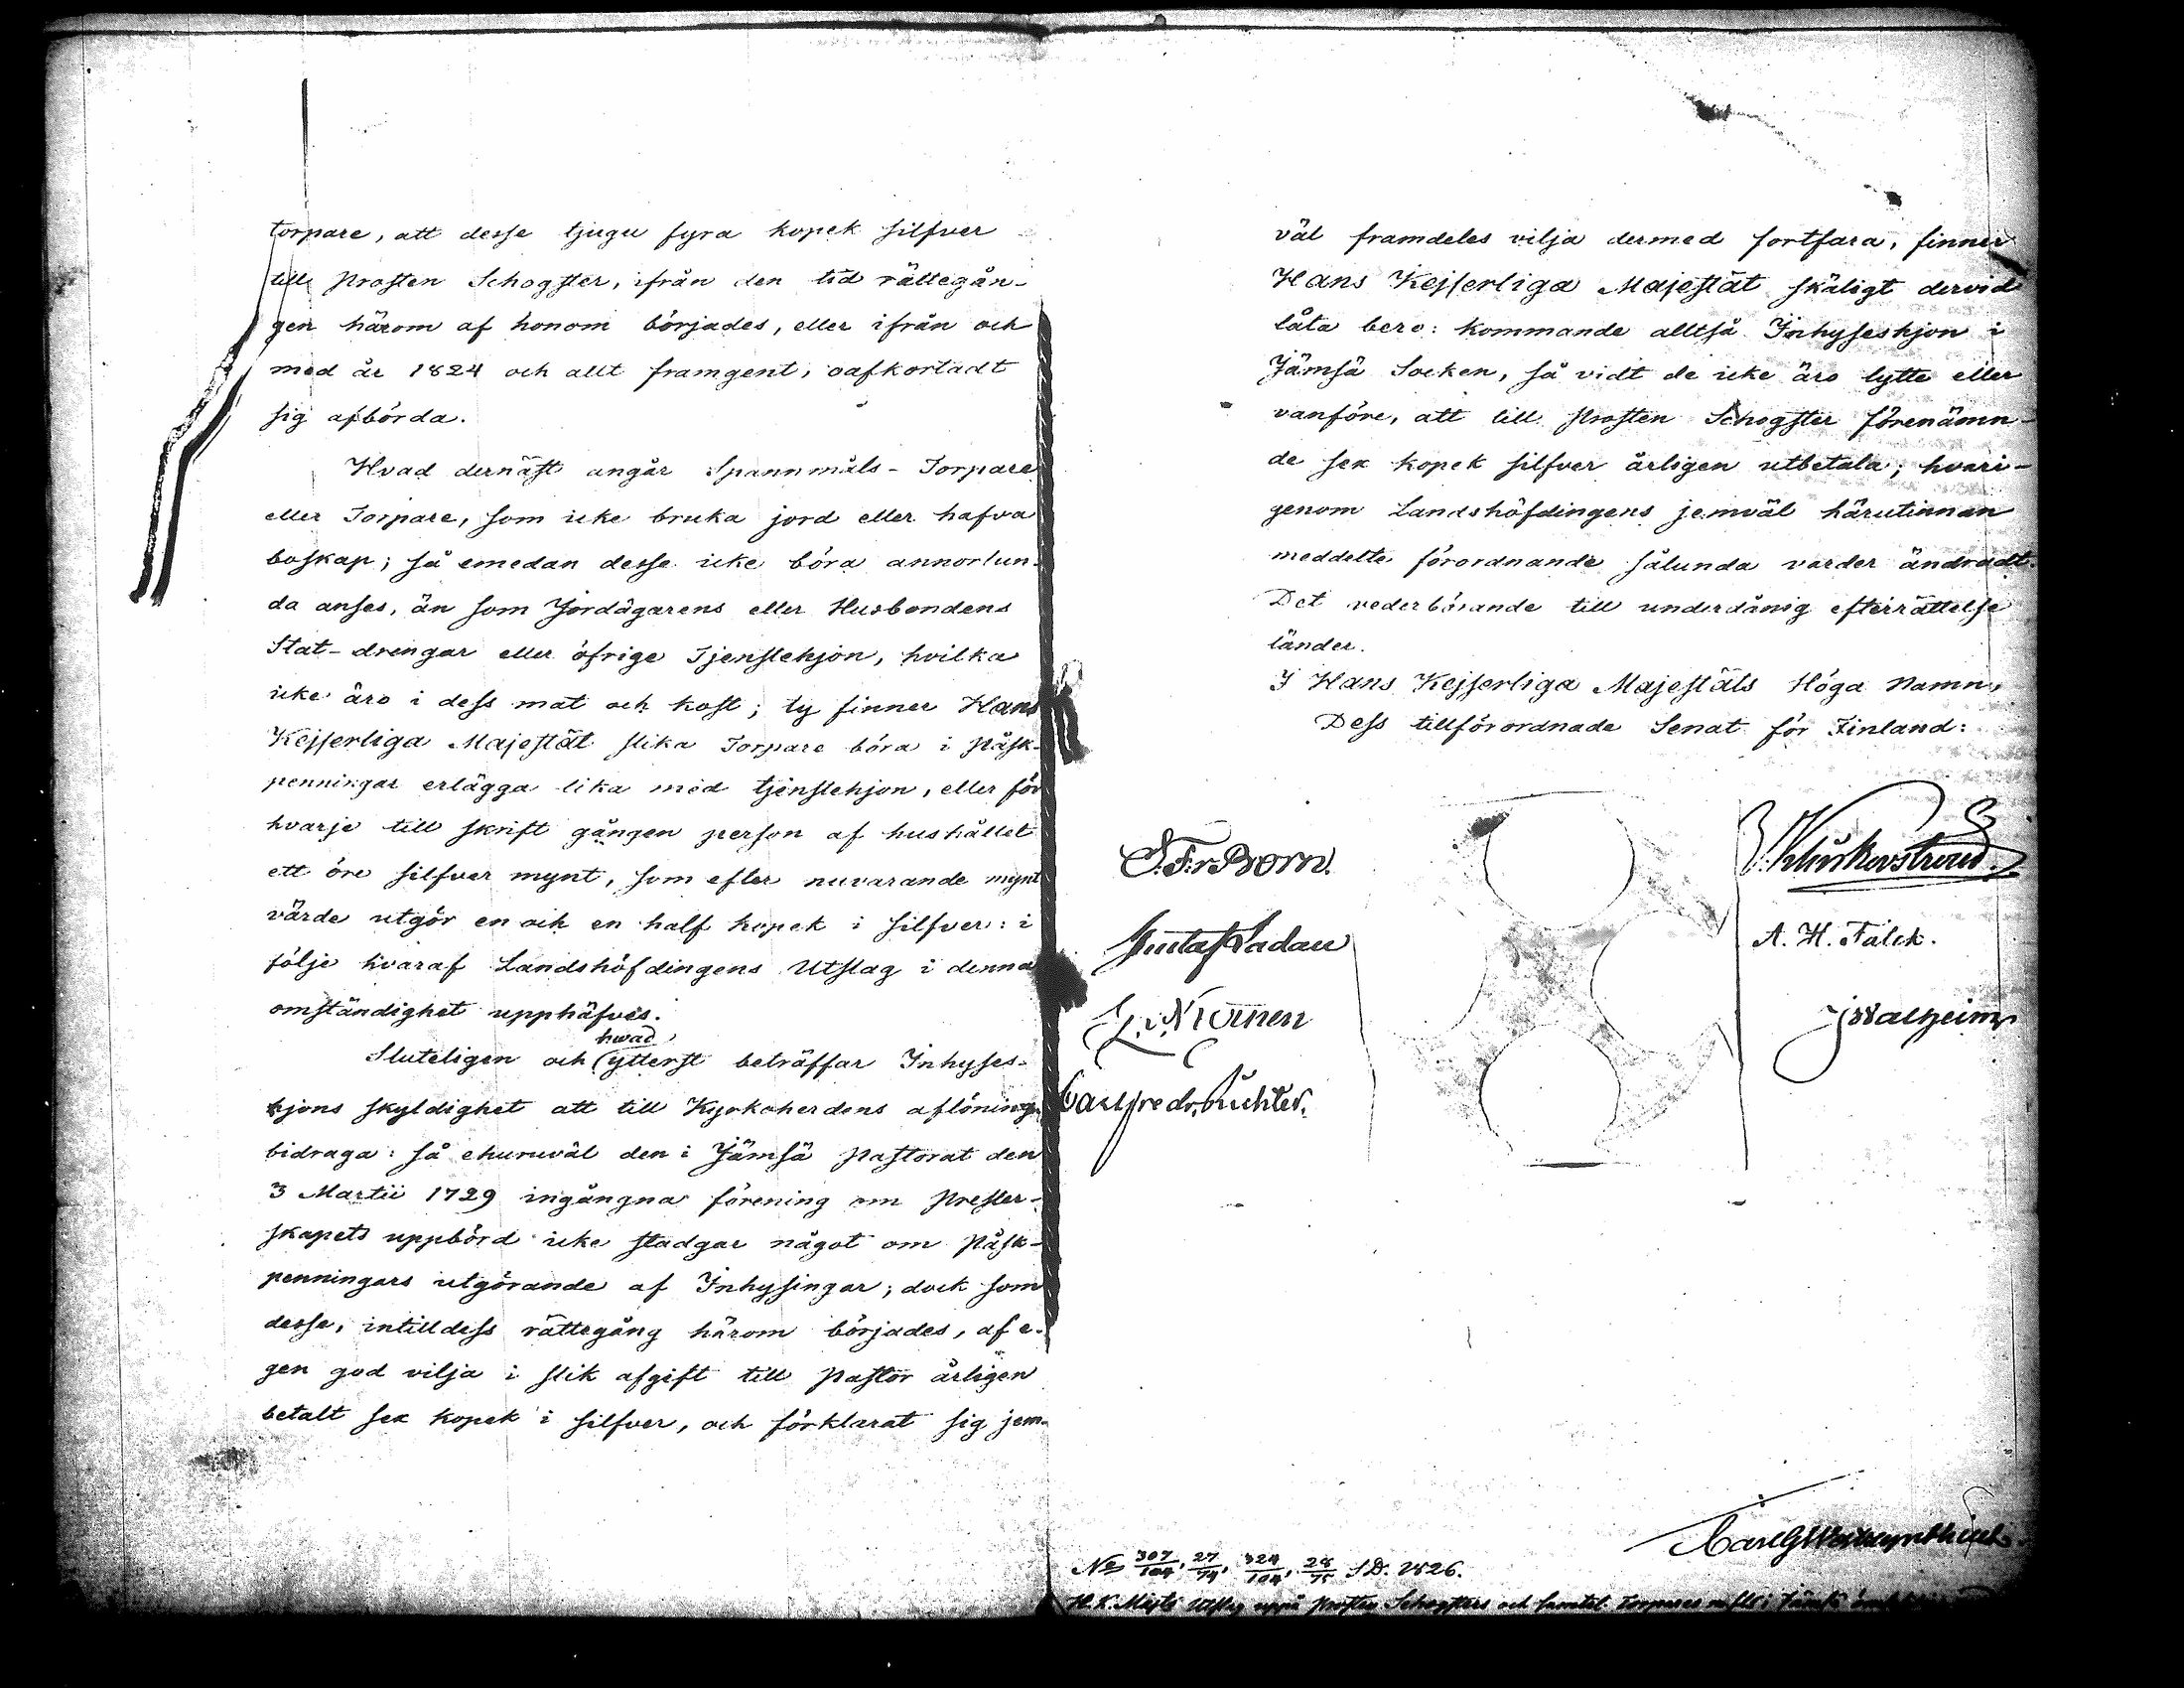 torpare, att desse tjugu fyra kopek silfver
till Prosten Schogster, ifrån den tid rättegån-
gen härom af honom börjades, eller ifrån och
med år 1824 och allt framgent, oafkortadt
sig afbörda.
Hvad dernäst angår Spannmåls-Torpare
eller Torpare, som icke bruka jord eller hafva
boskap; så emedan desse icke böra annorlun-
da anses, än som Jordägarens eller Husbondens
Stat-drengar eller öfrige Tjenstehjon, hvilka
icke äro i dess mat och kost; ty finner Hans
Kejserliga Majestät slika Torpare böra i Påsk-
penningar erlägga lika med tjenstehjon, eller för
hvarje till skrift gången person af hushållet
ett öre silfver mynt, som efter nuvarande mynt
värde utgör en och en half kopek i silfver: i
följe hvaraf Landshöfdingens Utslag i denna
omständighet upphäfves.
hwad
Sluteligen och ytterst beträffar Inhyses-
hjons skyldighet att till Kyrkoherdens aflöning
bidraga: så ehuruväl den i Jämsä Pastorat den
3 Martii 1729 ingångna förening om Prester-
skapets uppbörd icke stadgar något om Påsk-
penningars utgörande af Inhysingar; dock som
desse, intilldess rättegång härom börjades, af e-
gen god vilja i slik afgift till Pastor årligen
betalt sex kopek i silfver, och förklarat sig jem-
väl framdeles vilja dermed fortfara, finner
Hans Kejserliga Majestät skäligt dervid
låta bero: kommande alltså Inhyseshjon i
Jämsä Socken, så vidt de icke äro lytte eller
vanföre, att till Prosten Schogster förenämn-
de sex kopek silfver årligen utbetala; hvari-
genom Landshöfdingens jemväl härutinnan
meddelte förordnande sålunda varder ändradt.
Det vederbörande till underdånig efterrättelse
länder.
I Hans Kejserliga Majestäts Höga Namn,
Dess tillförordnade Senat för Finland:
S. F. v. Born.
Klinckowström
Gustaf Ladau
A. H. Falck.
J Walheim
Carl Fredr. Richter.
No 307/104, 27/74, 324/104, 28/75 S.D. 1826.
H. K. Majts Utslag uppå Prosten Schogsters och samtel. Torpares